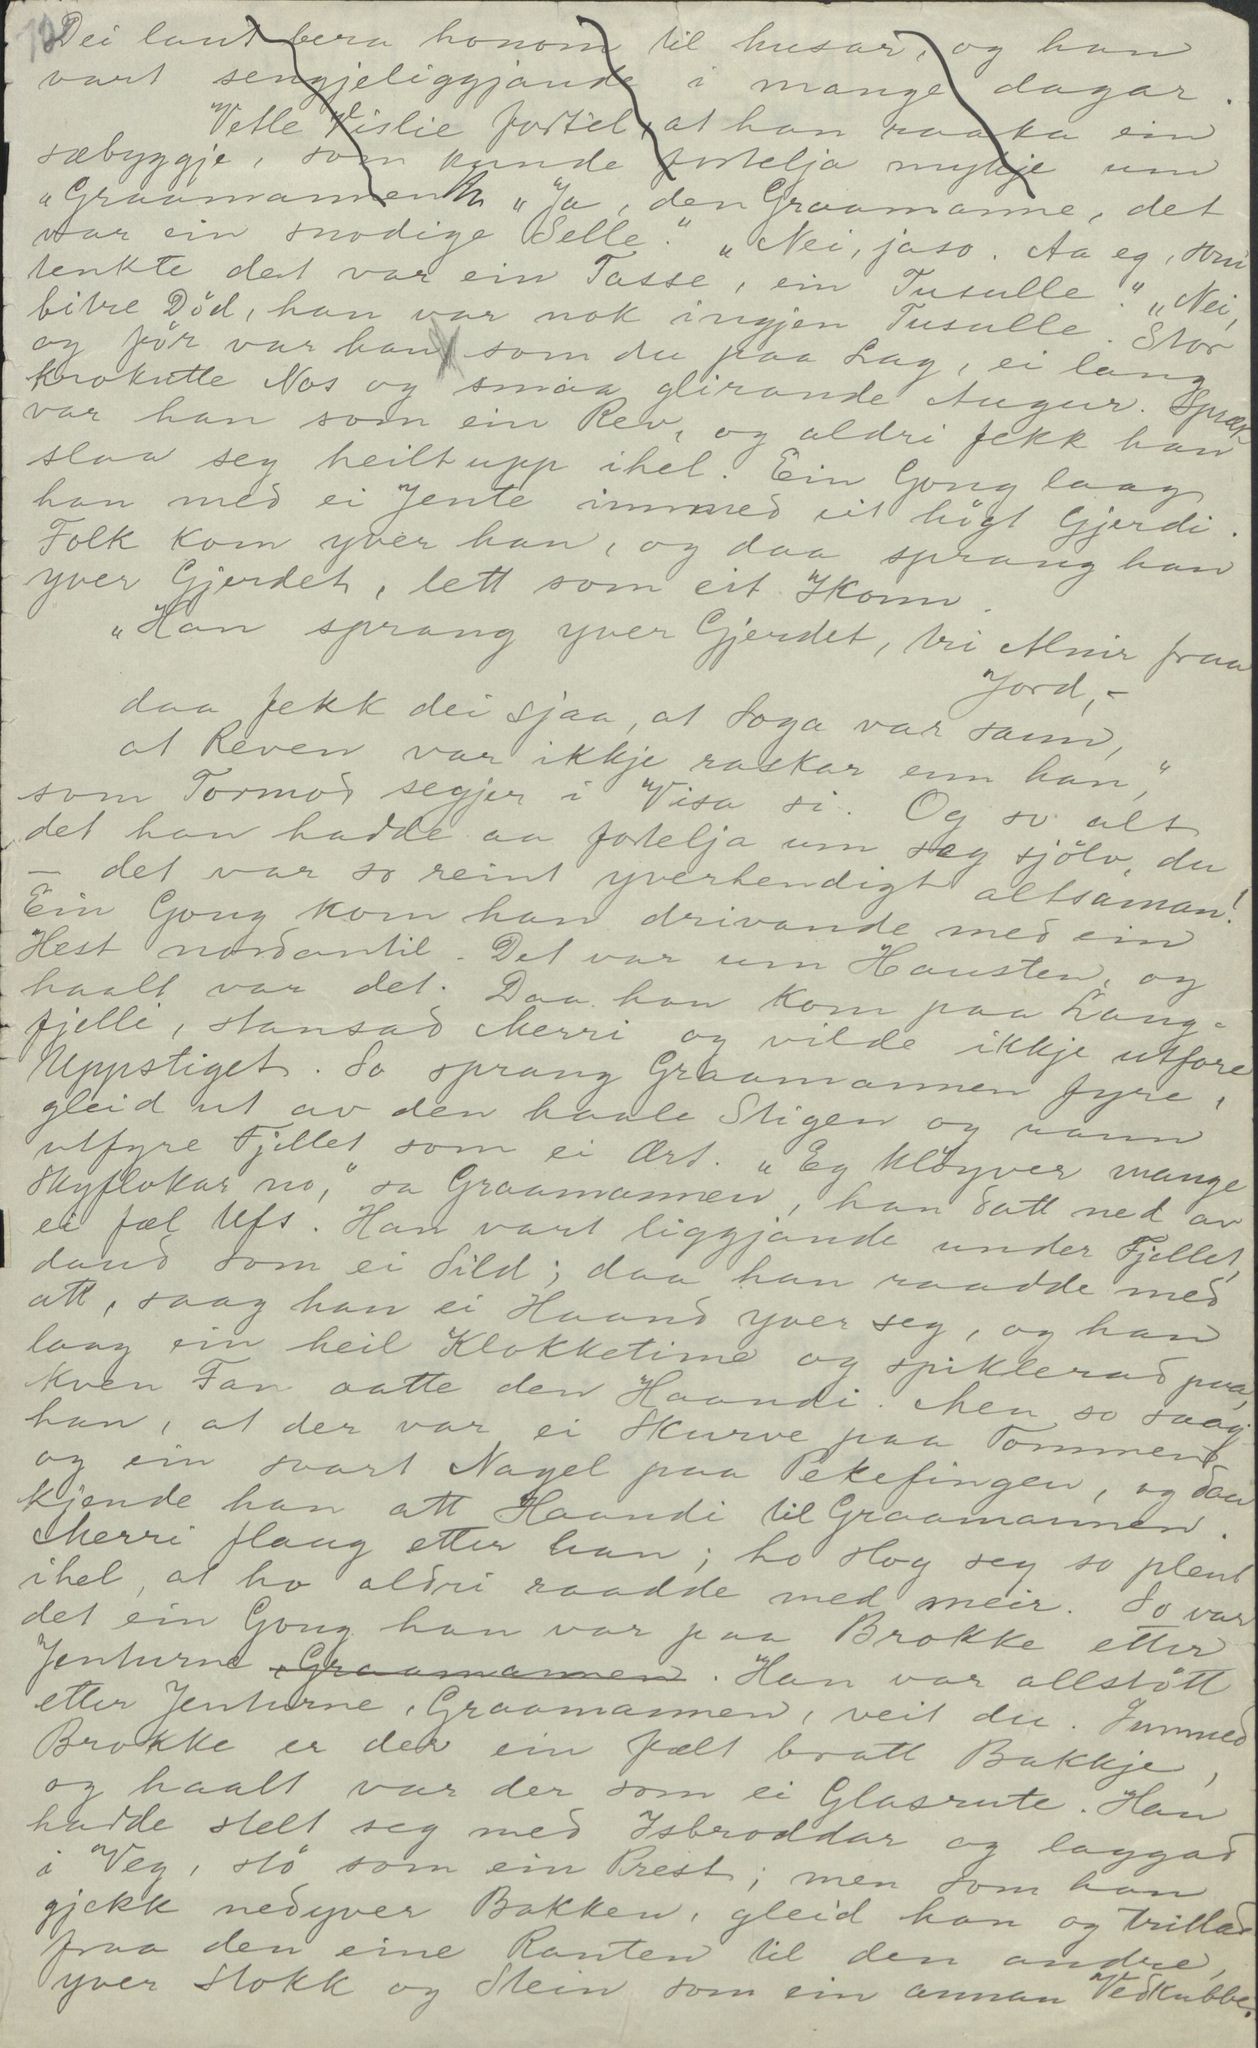 Dei laut bera honom til husar, og han
vart sengjeliggjande i mange dagar.
Vetle Vislie fortel, at han raaka ein
sæbyggje, som kunde fortelja mykje um
"Graamannen". "Ja, den Graamanne, det
var ein snodige Selle." "Nei, jaso. Aa eg, som
tenkte det var ein Tasse, ein Tusulle." "Nei,
bitre Död, han var nok ingjen Tusulle. Stor
og för var han som du paa Lag, ei lang
krokutte Nos og smaa glirande Augur. Spræk
var han som ein Rev, og aldri fekk han
slaa seg heilt upp ihel. Ein Gong laag
han med ei Jente innmed eit högt Gjerdi.
Folk kom yver han, og daa sprang han
yver Gjerdet, lett som eit Ikonn.
"Han sprang yver Gjerdet, tri Alnir fraa
Jord,-
daa fekk dei sjaa, at Soga var sann,
at Reven var ikkje raskar enn han,"
som Tormod segjer i Visa si. Og so alt
det han hadde aa fortelja um seg sjölv, du
— det var so reint yverhendigt altsaman!
Ein Gong kom han drivande med ein
Hest nordantil. Det var um Hausten, og
haalt var det. Daa han kom paa Lang-
fjelli, stansad Merri og vilde ikkje utfore
Uppstiget. So sprang Graamannen fyre,
gleid ut av den haale Stigen og rann
utfyre Fjellet som ei Ært. "Eg klöyver mange
Skyflokar no," sa Graamannen, han datt ned av
ei fæl Ufs. Han vart liggjande under Fjellet,
daud som ei Sild; daa han raadde med
att, saag han ei Haand yver seg, og han
laag ein heil Klokketime og spiklerad paa,
kven Fan aatte den Haandi. Men so saag
han, at der var ei Skurve paa Tommen,
og ein svart Nagel paa Pekefingen, og daa
kjende han att Haandi til Graamannen.
Merri flaug etter han; ho slog seg so plent
ihel, at ho aldri raadde med meir. So var
det ein Gong han var paa Brokke etter
Jenturne, Graamannen. Han var allstött
etter Jenturne, Graamannen, veit du. Innmed
Brokke er der ein fælt bratt Bakkje,
og haalt var der som ei Glasrute. Han
hadde stelt seg med Isbroddar og laggad
i Veg, stö som ein Prest; men som han
gjekk nedyver Bakken, gleid han og trillad
fraa den eine Kanten til den andre,
yver Stokk og Stein som ein annan Vedkubbe.